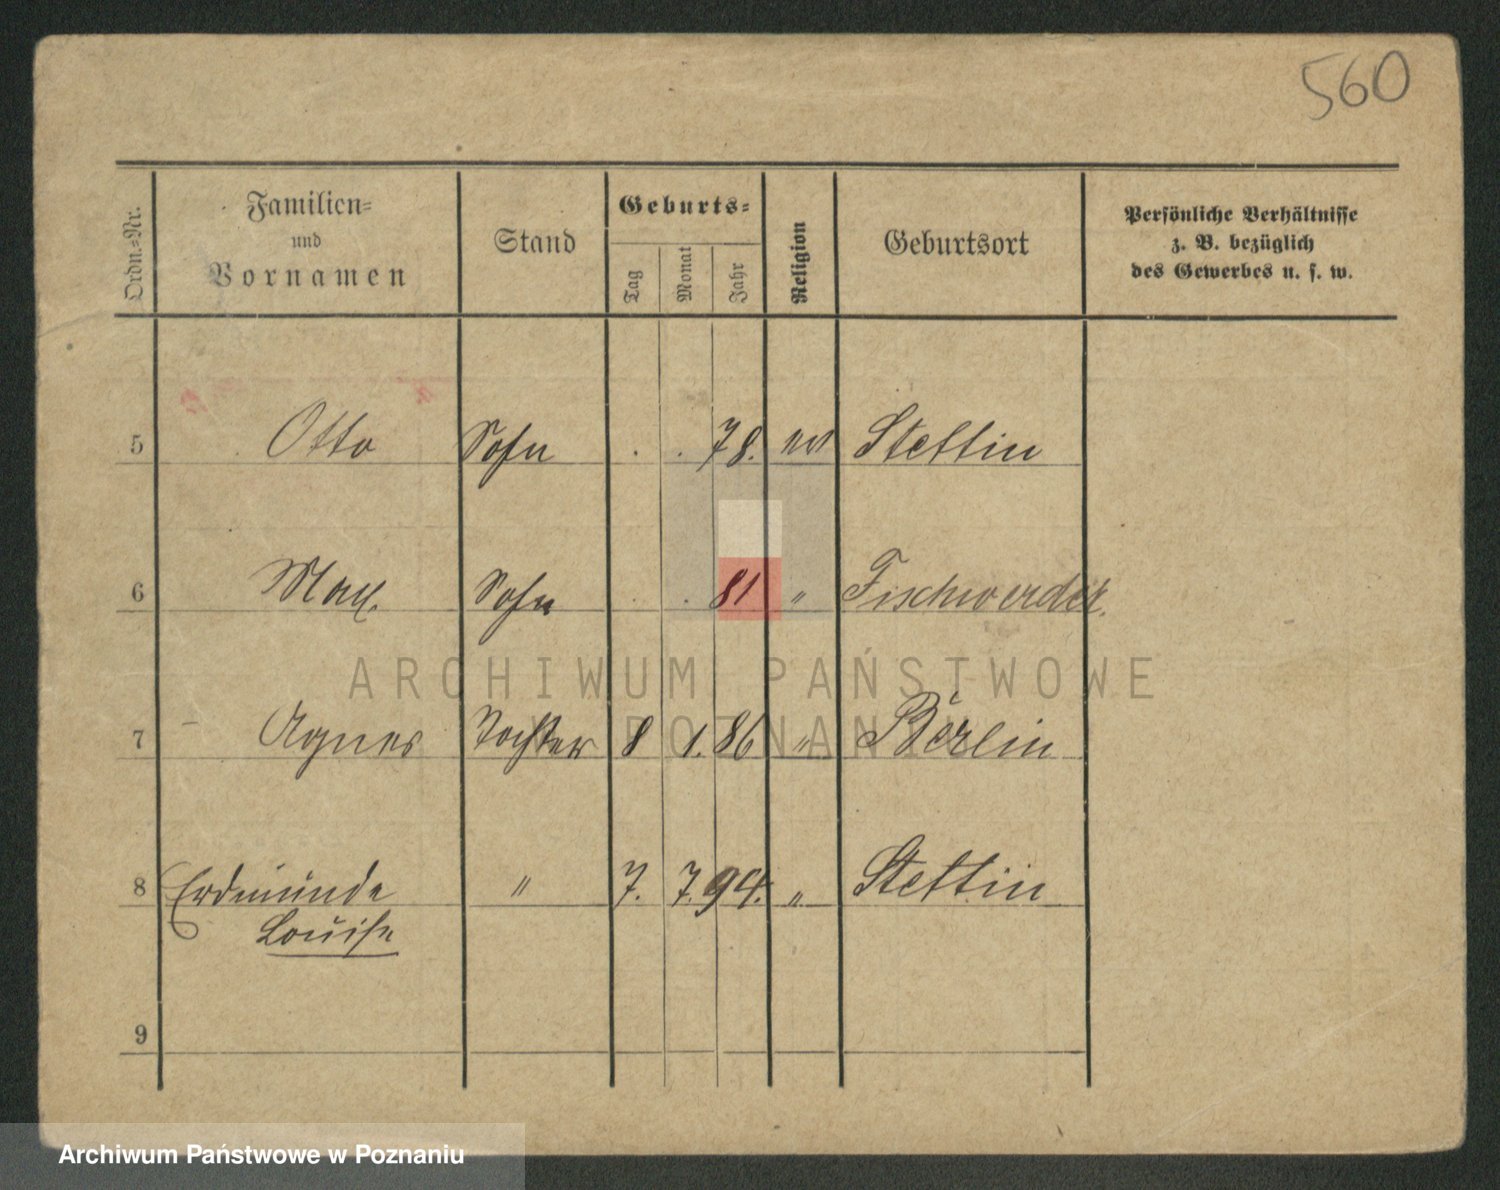 560
Ordn.-Nr.
Familien-
und
Vornamen
Stand
Geburts-
Tag
Monat
Jahr
Religion
Geburtsort
Persönliche Verhältnisse
z. B. bezüglich
des Gewerbes u. s. w.
5 Otto Sohn . . 78. ev Stettin
6 Max. Sohn . . 81 " Fischwerder.
ARCHIWUM PAŃSTWOWE
W POZNANIU
7 Agnes Tochter 8 1. 86 " Berlin
8 Erdmunde " 7. 7. 94. " Stettin
Louise
9
Archiwum Państwowe w Poznaniu